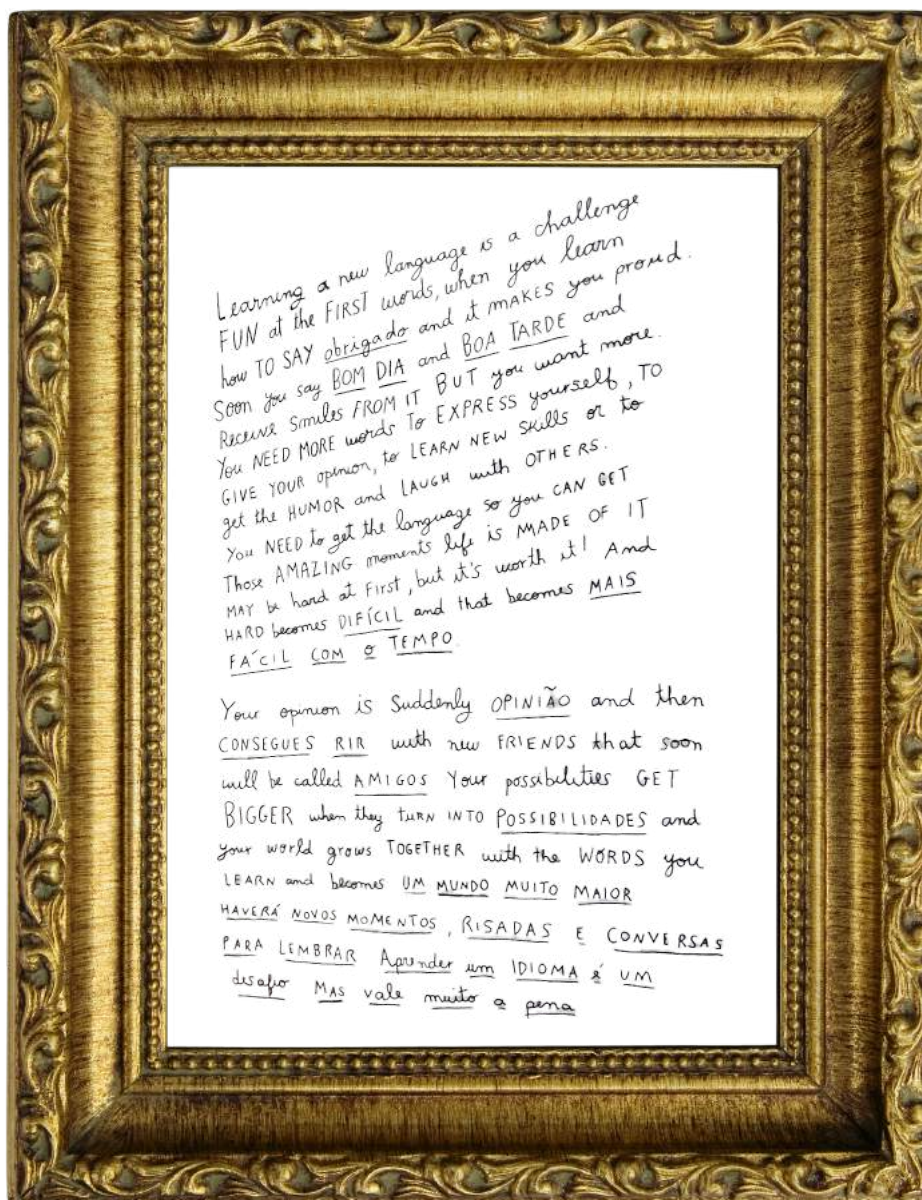 Learning a new language is a challenge
FUN at the FIRST words, when you learn
how TO SAY obrigado and it MAKES you proud.
Soon you say BOM DIA and BOA TARDE and
Receive Smiles FROM IT BUT you want more.
You NEED MORE words To EXPRESS yourself, TO
GIVE YOUR opinion, to LEARN NEW SKills or to
get the HUMOR and LAUGH with OTHERS.
You NEED to get the language so you CAN GET
Those AMAZING moments life is MADE OF IT
MAY be hard at First, but it's worth it! And
HARD becomes DIFÍCIL and that becomes MAIS
FÁCIL COM o TEMPO.
Your opinion is Suddenly OPINIÃO and then
CONSEGUES RIR with new FRIENDS that soon
will be called AMIGOS Your possibilities GET
BIGGER when they TURN INTO POSSIBILIDADES and
your world grows TOGETHER with the WORDS you
LEARN and becomes UM MUNDO MUITO MAIOR
HAVERÁ NOVOS MOMENTOS, RISADAS E CONVERSAS
PARA LEMBRAR Aprender um IDIOMA é UM
desafio MAS vale muito a pena